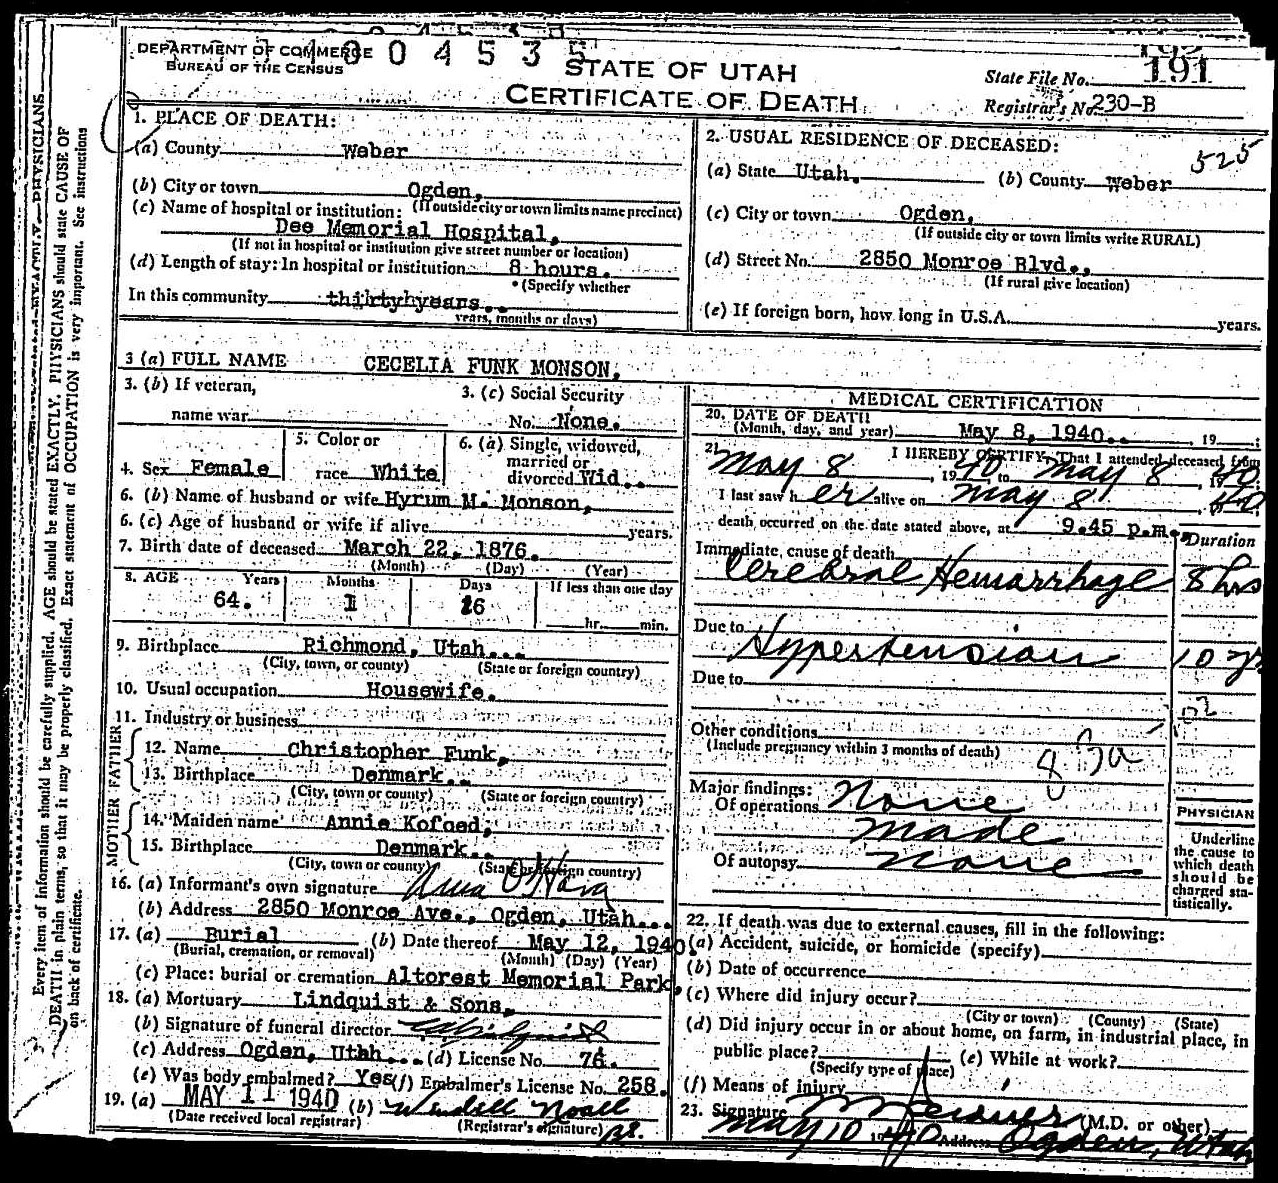 1 0 0 4 5 3 5
DEPARTMENT OF COMMERCE
BUREAU OF THE CENSUS
STATE OF UTAH
CERTIFICATE OF DEATH
State File No. 191
Registrar's No. 230-B
1. PLACE OF DEATH:
(a) County Weber
(b) City or town Ogden,
(If outside city or town limits name precinct)
(c) Name of hospital or institution:
Dee Memorial Hospital,
(If not in hospital or institution give street number or location)
(d) Length of stay: In hospital or institution 8 hours.
(Specify whether
In this community thirty years..
years, months or days)
2. USUAL RESIDENCE OF DECEASED:
525
(a) State Utah. (b) County Weber
(c) City or town Ogden,
(If outside city or town limits write RURAL)
(d) Street No. 2850 Monroe Blvd.,
(If rural give location)
(e) If foreign born, how long in U.S.A. years.
3 (a) FULL NAME CECELIA FUNK MONSON,
3. (b) If veteran,
name war
3. (c) Social Security
No. None.
4. Sex Female
5. Color or
race White
6. (a) Single, widowed,
married or
divorced Wid..
6. (b) Name of husband or wife Hyrum M. Monson,
6. (c) Age of husband or wife if alive years.
7. Birth date of deceased March 22, 1876.
(Month) (Day) (Year)
8. AGE Years Months Days If less than one day
64. 1 16 hr. min.
9. Birthplace Richmond, Utah...
(City, town, or county) (State or foreign country)
10. Usual occupation Housewife.
11. Industry or business
FATHER
12. Name Christopher Funk,
13. Birthplace Denmark..
(City, town or county) (State or foreign country)
MOTHER
14. Maiden name Annie Kofoed,
15. Birthplace Denmark..
(City, town or county) (State or foreign country)
16. (a) Informant's own signature Anna O'Hara
(b) Address 2850 Monroe Ave., Ogden, Utah...
17. (a) Burial (b) Date thereof May 12, 1940.
(Burial, cremation, or removal) (Month) (Day) (Year)
(c) Place: burial or cremation Altorest Memorial Park,
18. (a) Mortuary Lindquist & Sons,
(b) Signature of funeral director
(c) Address Ogden, Utah... (d) License No. 76.
(e) Was body embalmed? Yes (f) Embalmer's License No. 258.
19. (a) MAY 11 1940 (b) Wendell Noall
(Date received local registrar) (Registrar's signature)
MEDICAL CERTIFICATION
20. DATE OF DEATH
(Month, day, and year) May 8, 1940.. , 19 :
21. I HEREBY CERTIFY, That I attended deceased from
May 8, 1940, to May 8, 1940
I last saw her alive on May 8, 40
death occurred on the date stated above, at 9.45 p.m.
Duration
Immediate cause of death
Cerebral Hemarrhage 8 hrs
Due to
Hypertension 10 yr
Due to
Other conditions
(Include pregnancy within 3 months of death)
83a
Major findings:
Of operations None
made
Of autopsy none
PHYSICIAN
Underline
the cause to
which death
should be
charged sta-
tistically.
22. If death was due to external causes, fill in the following:
(a) Accident, suicide, or homicide (specify)
(b) Date of occurrence
(c) Where did injury occur?
(City or town) (County) (State)
(d) Did injury occur in or about home, on farm, in industrial place, in
public place? (e) While at work?
(Specify type of place)
(f) Means of injury
23. Signature (M.D. or other)
May 10 1940 Address Ogden, Utah
Every item of information should be carefully supplied. AGE should be stated EXACTLY. PHYSICIANS should state CAUSE OF
DEATH in plain terms, so that it may be properly classified. Exact statement of OCCUPATION is very important. See instructions
on back of certificate.